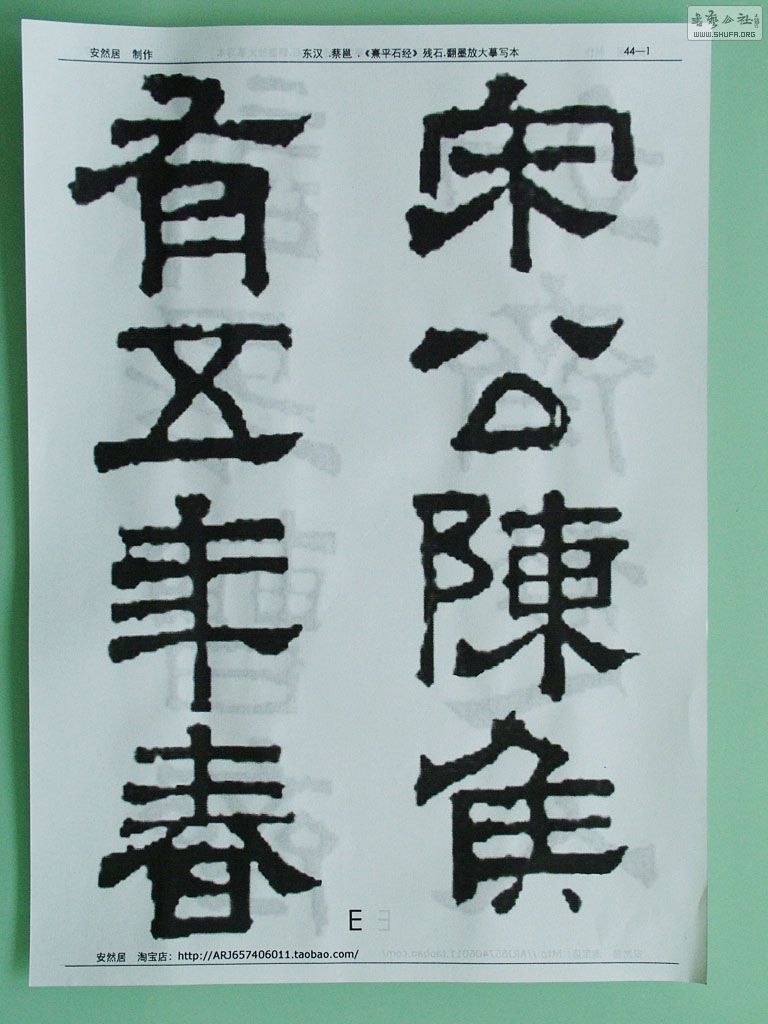 书艺公社
WWW.SHUFA.ORG
安然居 制作 东汉 .蔡邕 .《熹平石经》残石.翻墨放大摹写本 44—1
宋公陳侯
有五年春
E
安然居 淘宝店：http://ARJ657406011.taobao.com/